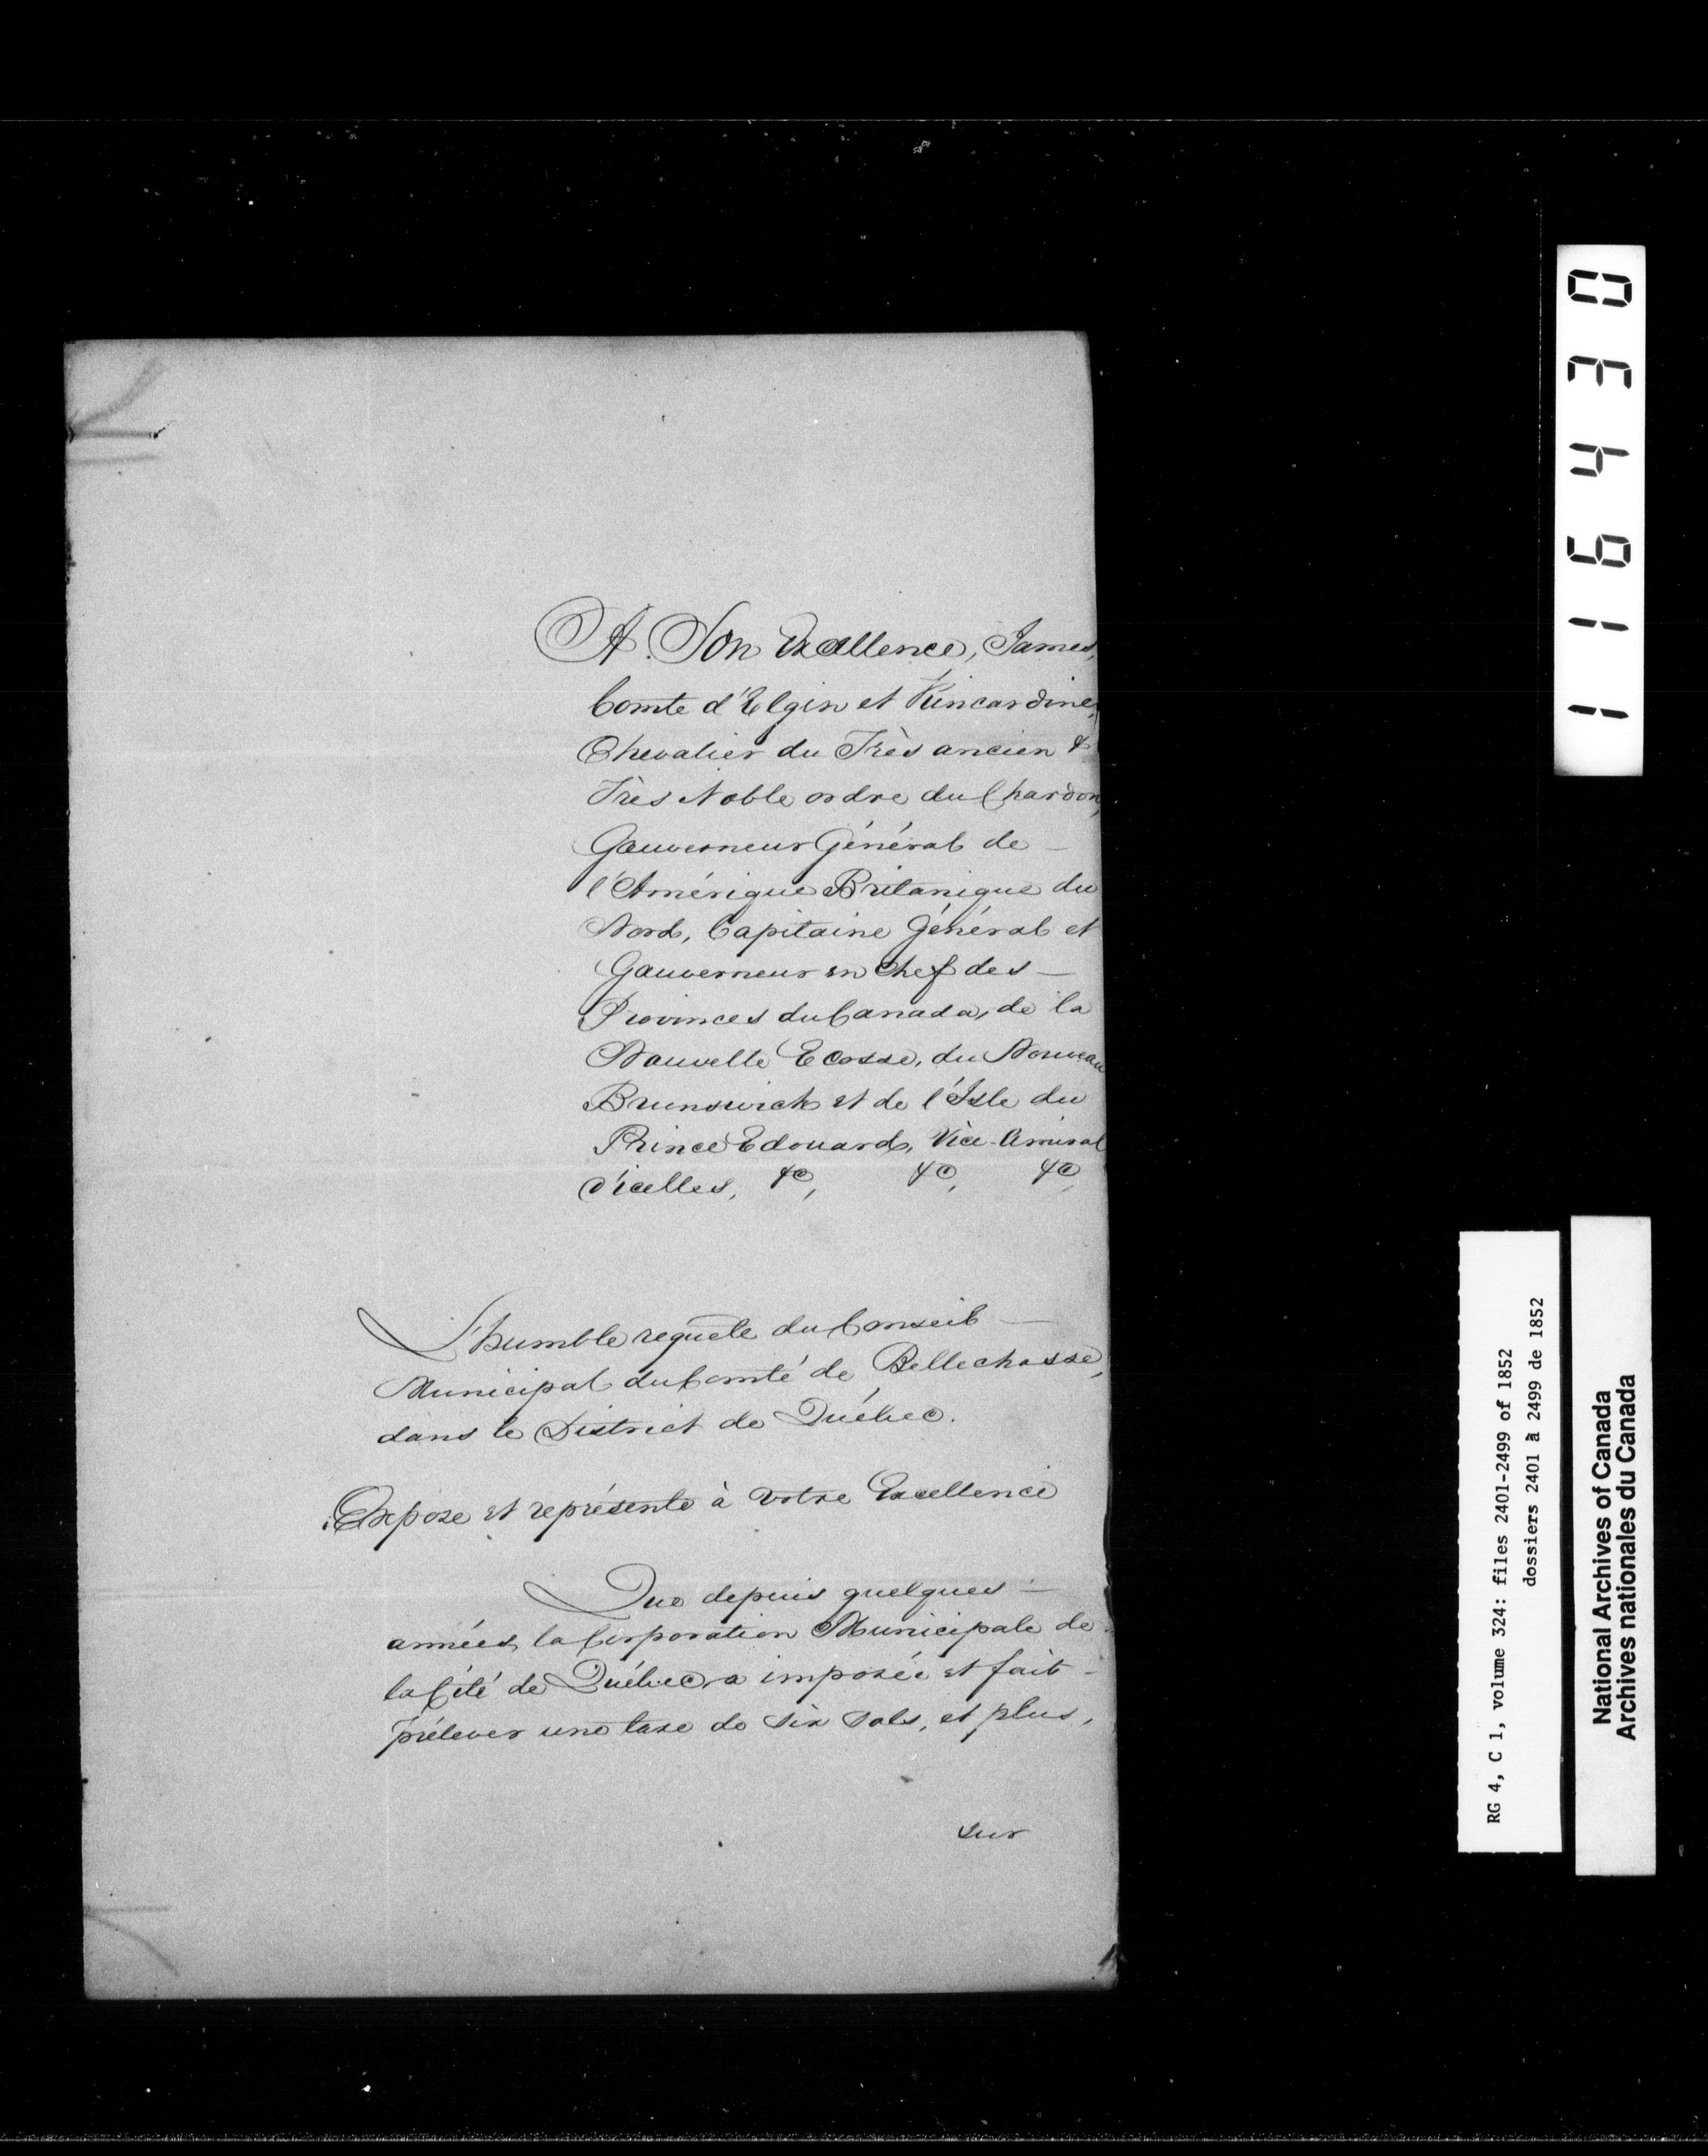 A Son Excellence, James,
Comte d'Elgin et Kincardine,
Chevalier du Très ancien &
Très Noble ordre du Chardon,
Gouverneur Général de —
l'Amérique Britanique du
Nord, Capitaine Général et
Gouverneur en Chef des —
Provinces du Canada, de la
Nouvelle Ecosse, du Nouveau
Brunswick et de l'Isle du
Prince Edouard, Vice-Amiral
d'icelles, &c, &c, &c,
L'humble requête du Conseil —
Municipal du Comté de Bellechasse,
dans le District de Québec.
Expose et représente à Votre Excellence
Que depuis quelques —
années, la Corporation Municipale de
la Cité de Québec, a imposée et fait —
prélever une taxe de six sols, et plus,
sur
116430
RG 4, C 1, volume 324: files 2401-2499 of 1852
dossiers 2401 à 2499 de 1852
National Archives of Canada
Archives nationales du Canada